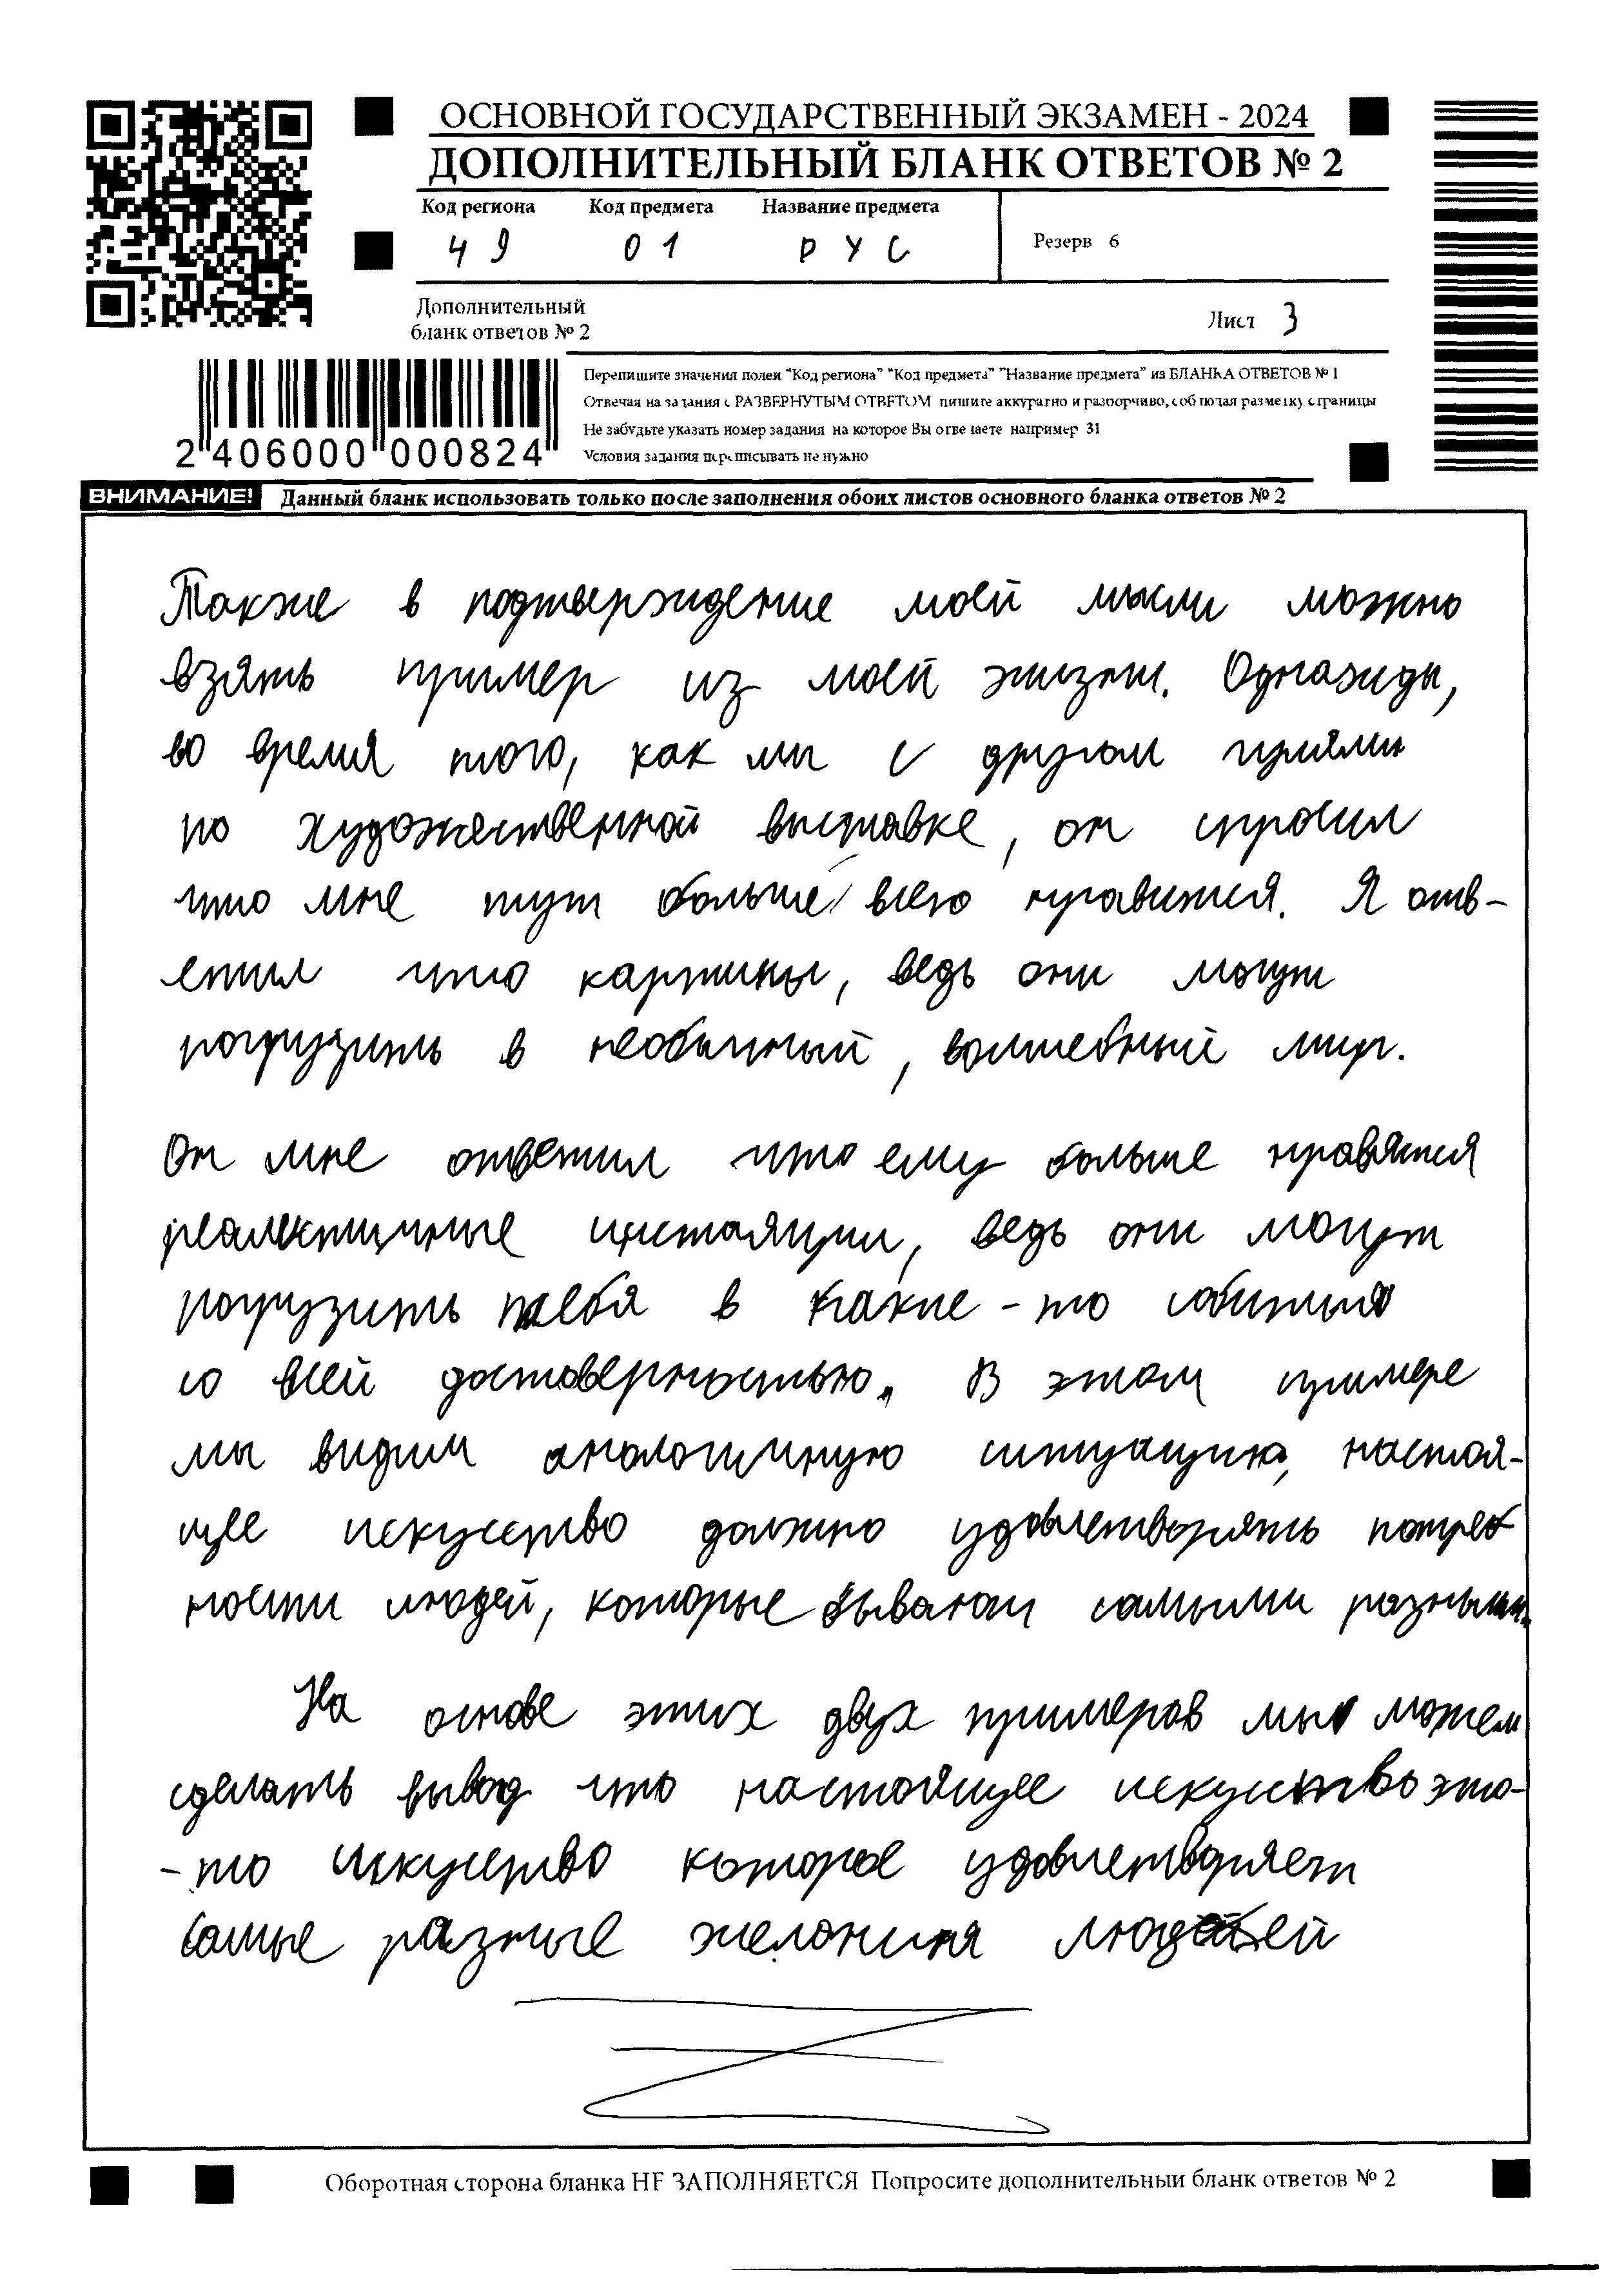 ОСНОВНОЙ ГОСУДАРСТВЕННЫЙ ЭКЗАМЕН - 2024
ДОПОЛНИТЕЛЬНЫЙ БЛАНК ОТВЕТОВ № 2
Код региона Код предмета Название предмета
49 01 РУС
Резерв 6
Дополнительный
бланк ответов № 2
Лист 3
Перепишите значения полей "Код региона" "Код предмета" "Название предмета" из БЛАНКА ОТВЕТОВ № 1
Отвечая на задания с РАЗВЕРНУТЫМ ОТВЕТОМ пишите аккуратно и разборчиво, соблюдая разметку страницы
Не забудьте указать номер задания на которое Вы отвечаете например 31
Условия задания переписывать не нужно
2 406000 000824
ВНИМАНИЕ! Данный бланк использовать только после заполнения обоих листов основного бланка ответов № 2
Также в подтверждение моей мысли можно
взять пример из моей жизни. Однажды,
во время того, как мы с другом гуляли
по художественной выставке, он спросил
что мне тут больше всего нравится. Я отв-
етил что картины, ведь они могут
погрузить в необычный, волшебный мир.
Он мне ответил что ему больше нравятся
реалистичные инсталяции, ведь они могут
погрузить тебя в какие-то события
со всей достоверностью. В этом примере
мы видим аналогичную ситуацию, настоя-
щее искусство должно удовлетворять потреб
ности людей, которые бывают самыми разными.
На основе этих двух примеров мы можем
сделать вывод что настоящее искусство это-
-то искусство которое удовлетворяет
самые разные желания людей
Оборотная сторона бланка НЕ ЗАПОЛНЯЕТСЯ Попросите дополнительный бланк ответов № 2